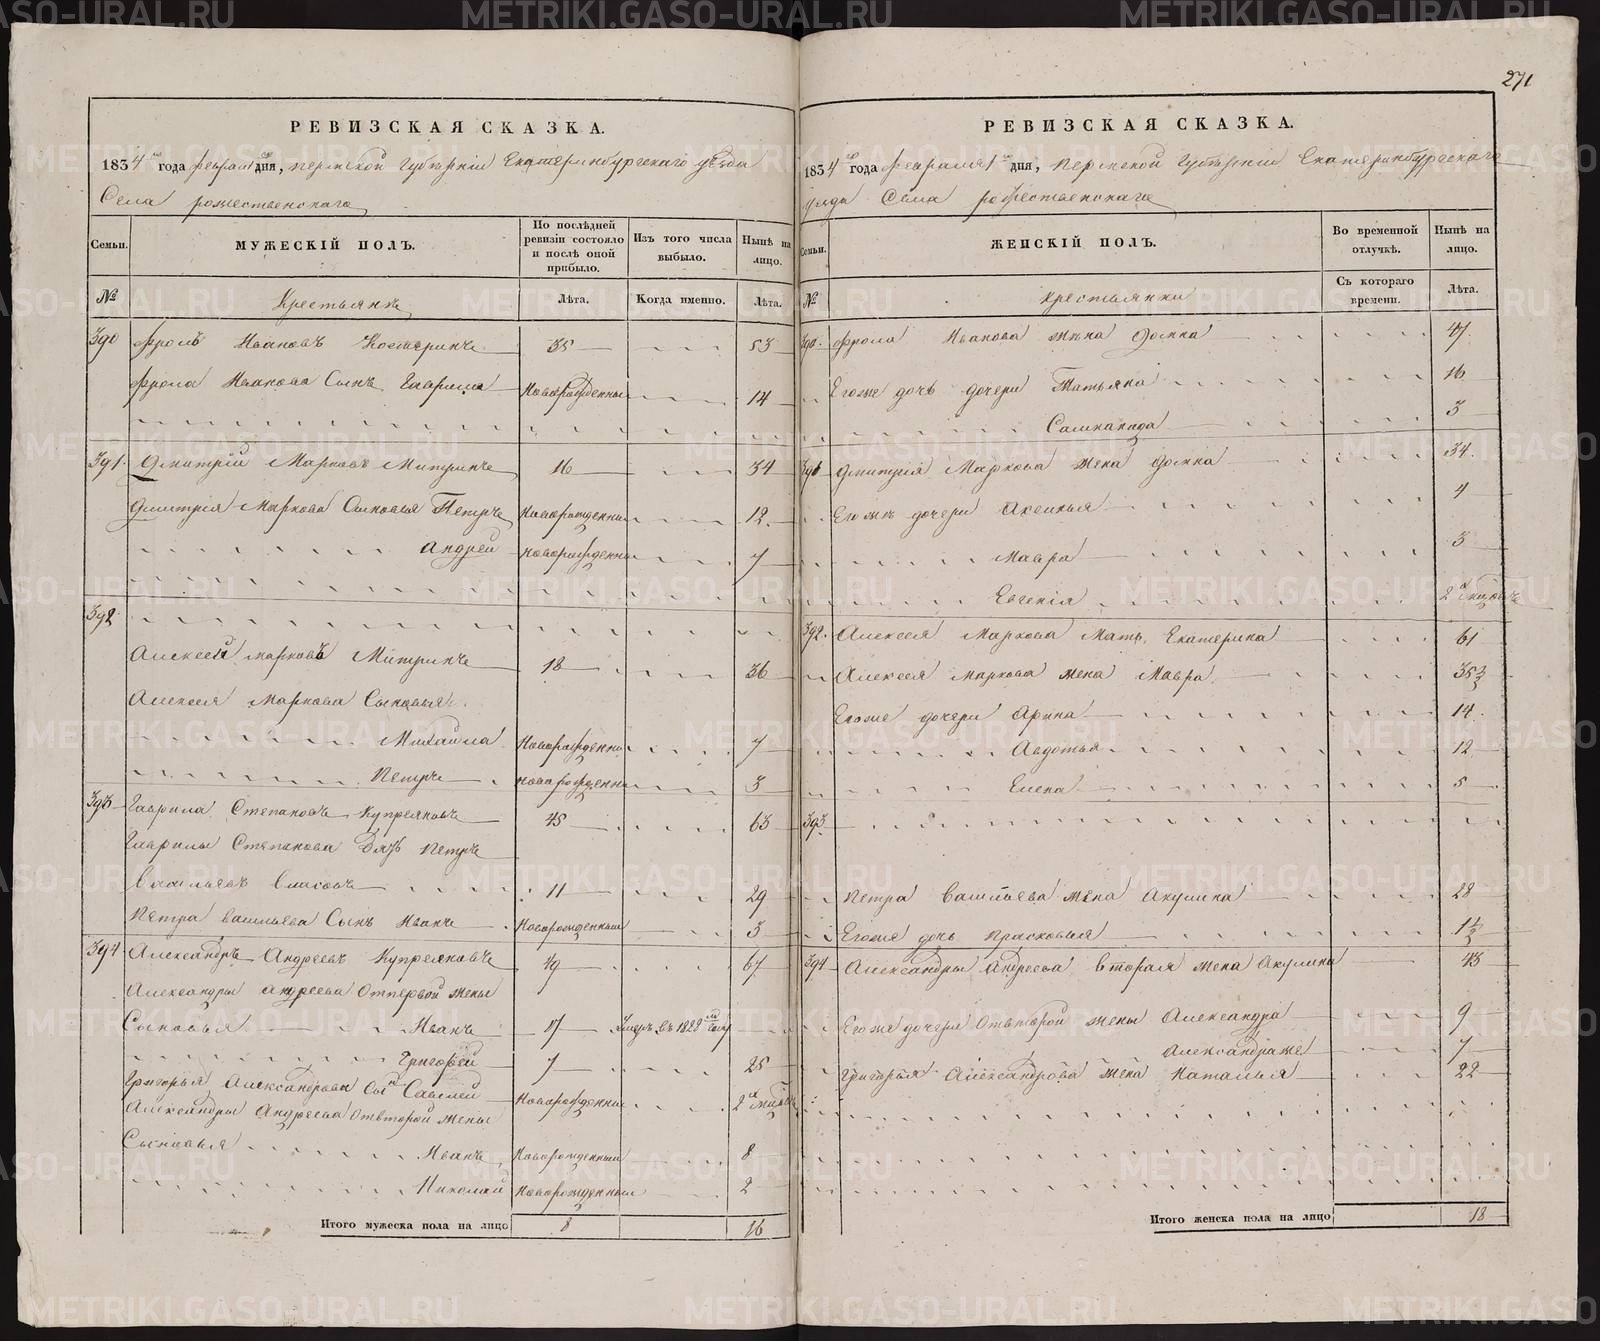 271
РЕВИЗСКАЯ СКАЗКА.
1834 года февраля 1 дня, пермской губернiи Екатеринбургскаго уезда
Села рожественскаго
Семьи. МУЖЕСКIЙ ПОЛЪ. По послѣдней ревизіи состояло и послѣ оной прибыло. Изъ того числа выбыло. Нынѣ на лицо.
№ Крестьянъ Лѣта. Когда именно. Лѣта.
390 Фролъ Ивановъ Костеринъ 35 53
Фрола Иванова Сынъ Гаврила Новорожденный 14
391. Дмитрiй Марковъ Митринъ 16 34
Дмитрiя Маркова Сыновья Петръ Новорожденный 12.
Андрей новорожденный 7
392.
Алексей марковъ Митринъ 18 36
Алексея Маркова Сыновья
Михайла Новорожденный 7
Петръ новорожденный 3
393 Гаврила Степановъ Купреяновъ 45 63
Гаврилы Степанова зять Петръ
Васильевъ Власовъ 11 29
Петра васильева Сынъ Иванъ Новорожденный 3
394 Александръ Андреевъ Купреяновъ 49 67
Александры андреева Отпервой жены
Сыновья Иванъ 17 Умеръ въ 1828 году
Григорей 7 25
Григорья Александрова Сынъ Савелий Новорожденный 2 месяцъ
Александры Андреева Отвторой жены
Сыновья Иванъ Новорожденный 8
Николай Новорожденный 2
Итого мужеска пола на лицо 8 16
РЕВИЗСКАЯ СКАЗКА.
1834 года февраля 1 дня, пермской губернiи Екатеринбургскаго
уезда Села рожественскаго
Семьи. ЖЕНСКIЙ ПОЛЪ. Во временной отлучкѣ. Нынѣ на лицо.
№ крестьянки Съ котораго времени. Лѣта.
390. Фрола Иванова жена Домна 47.
Егоже дочь дочери Татьяна 16
Саломанида 3
391 Дмитрия Маркова жена домна 34.
Егожъ дочери Аксинья 4
Мавра 3
Евгения 2 месяцъ
392. Алексея Маркова Мать Екатерина 61
Алексея маркова жена Мавра 35
Егоже дочери Арина 14.
Авдотья 12
Елена 5
393
Петра васильева жена Акулина 28
Егоже дочь Прасковья 1½
394 Александры андреева вторая жена Акулина 43
Егоже дочери Отвторой жены Александра 9
Александраже 7
Григорья Александрова жена Наталья 22
Итого женска пола на лицо 18
METRIKI.GASO-URAL.RU